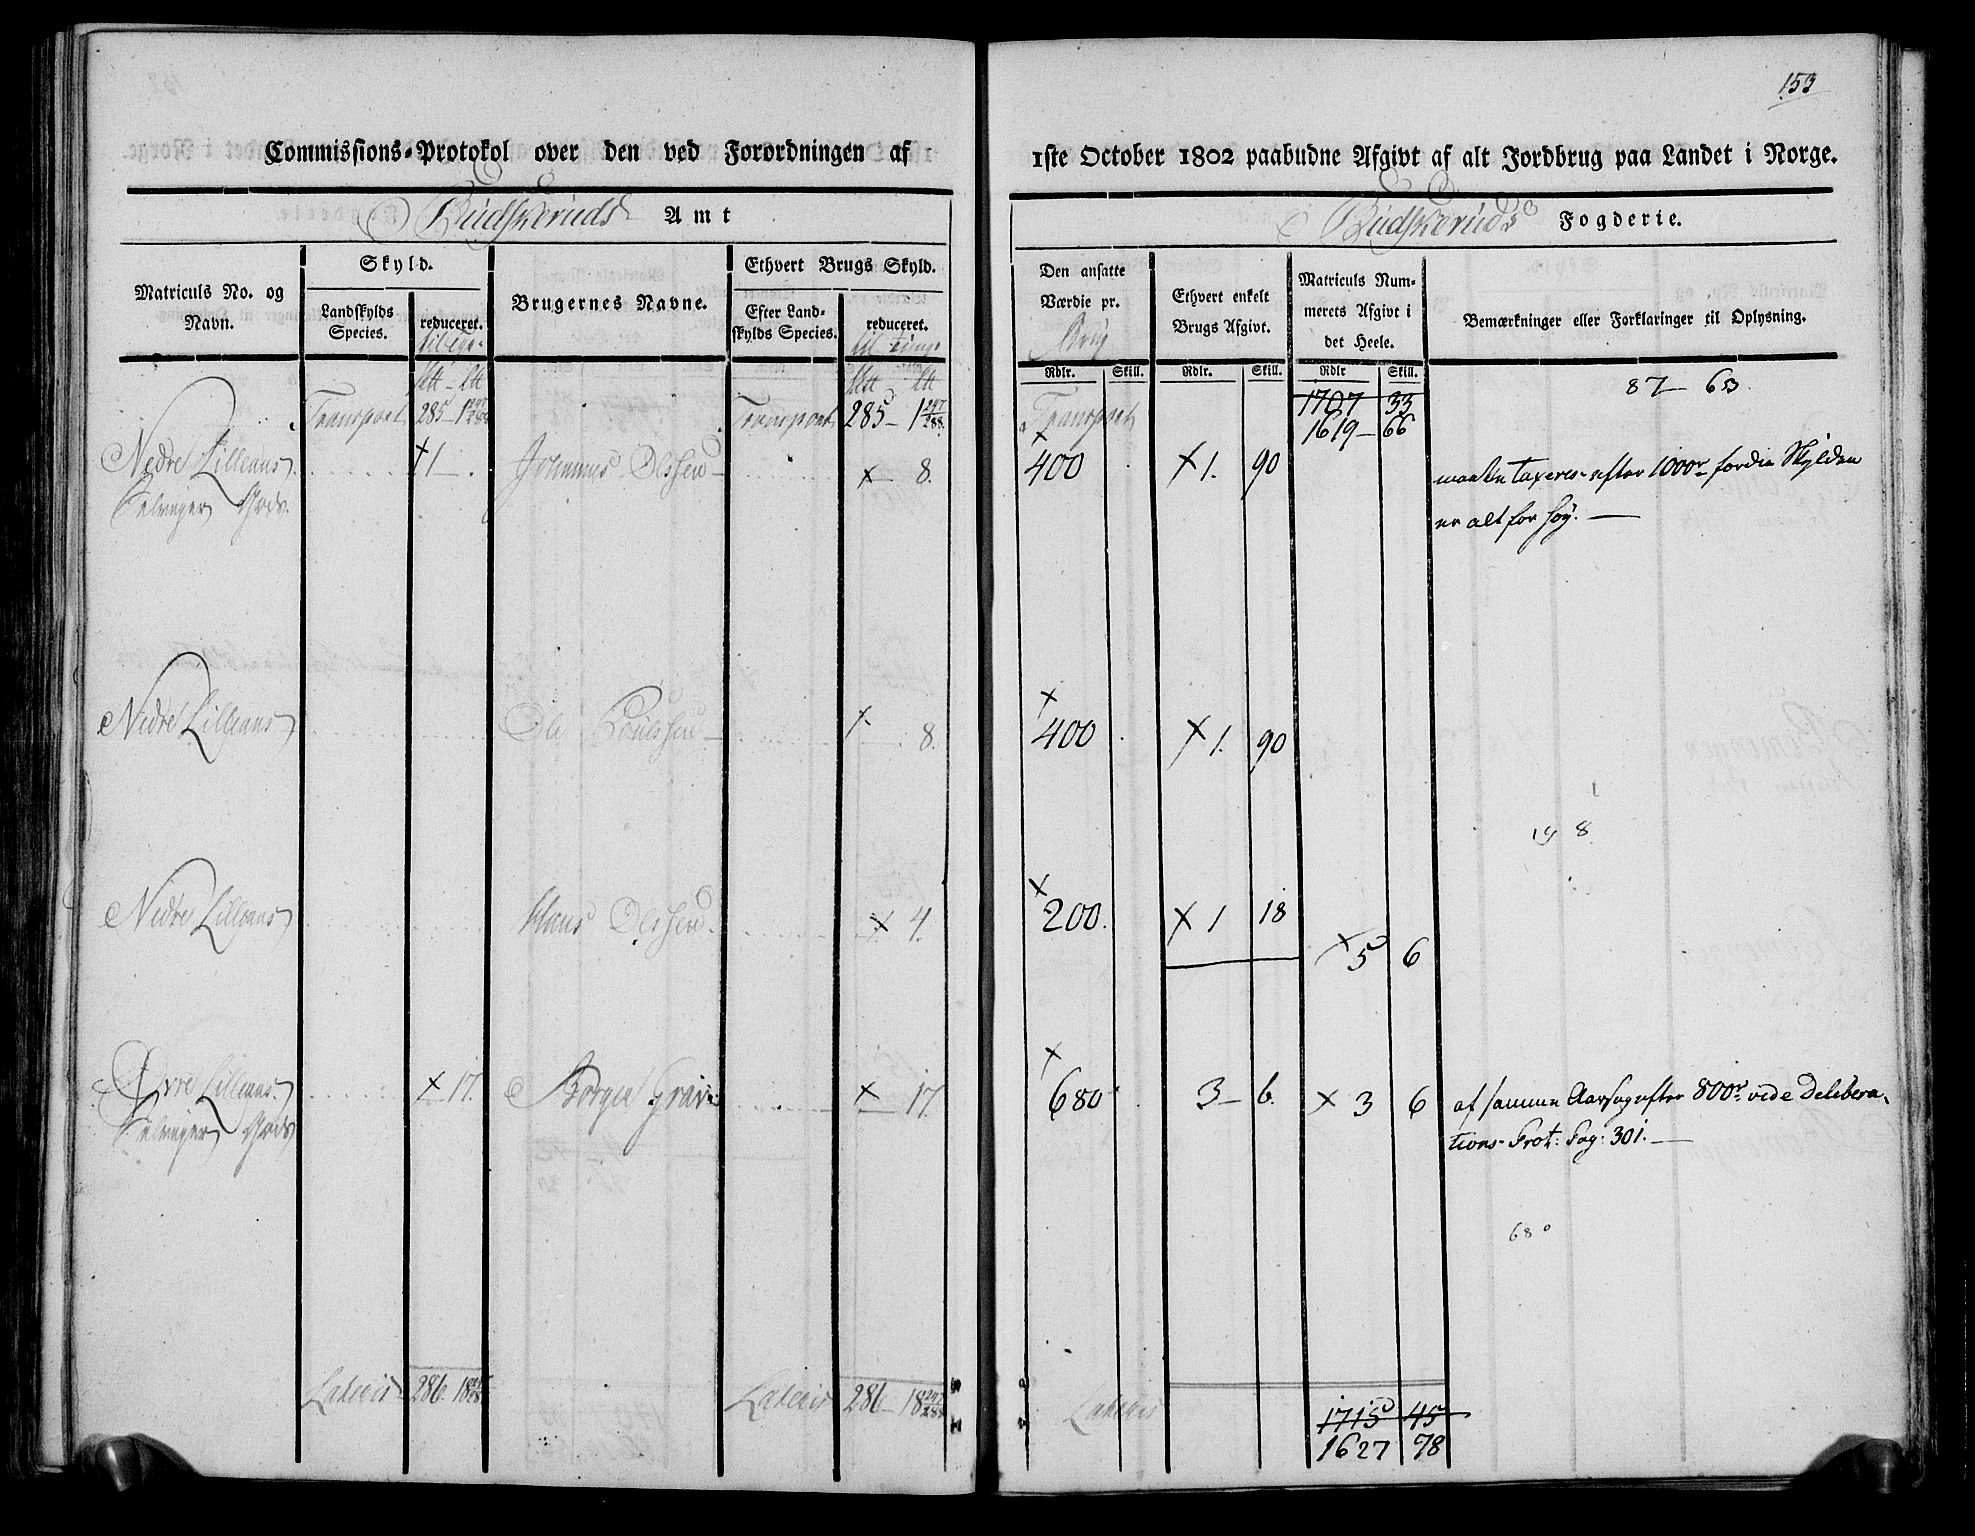 153
Commissions-Protokol over den ved Forordningen af 1ste October 1802 paabudne Afgivt af alt Jordbrug paa Landet i Norge.
Budskeruds Amt
Budskeruds Fogderie.
Matriculs No. og Navn.
Skyld.
Landskylds Species.
reduceret.
Brugernes Navne.
Ethvert Brugs Skyld.
Efter Landskylds Species.
reduceret.
Den ansatte Værdie pr. Brug
Ethvert enkelt Brugs Afgivt.
Matriculs Nummerets Afgivt i det Heele.
Bemærkninger eller Forklaringer til Oplysning.
Rdlr. Skill. Rdlr. Skill. Rdlr Skill.
87 - 63
Transport 285 - 1 247/288 Transport 285 - 1 247/288 Transport 1707 33
1619 - 66
Nedre Lilleaas 1 - . Johannes Olssen - 8. 400 . 1. 90
Selvejer Gods.
maatte taxeres efter 1000r fordie Skylden
er alt for høy. -
Nedre Lilleaas Ole Poulssen - 8. 400 . 1. 90
1
19 8
Nedre Lilleaas Hans Olssen - 4. 200. 1 18
5 6
Øvre Lilleaas - 17. Borger - 17. 680 . 3 - 6. 3 6 af samme Aarsag efter 800r. vide Delibera-
Selvejer Gods
tions-Prot: Pag: 301. -
680
Lateris 286. 18 247/288 Lateris 286 - 18 247/288 Lateris 1715 45
1627 78